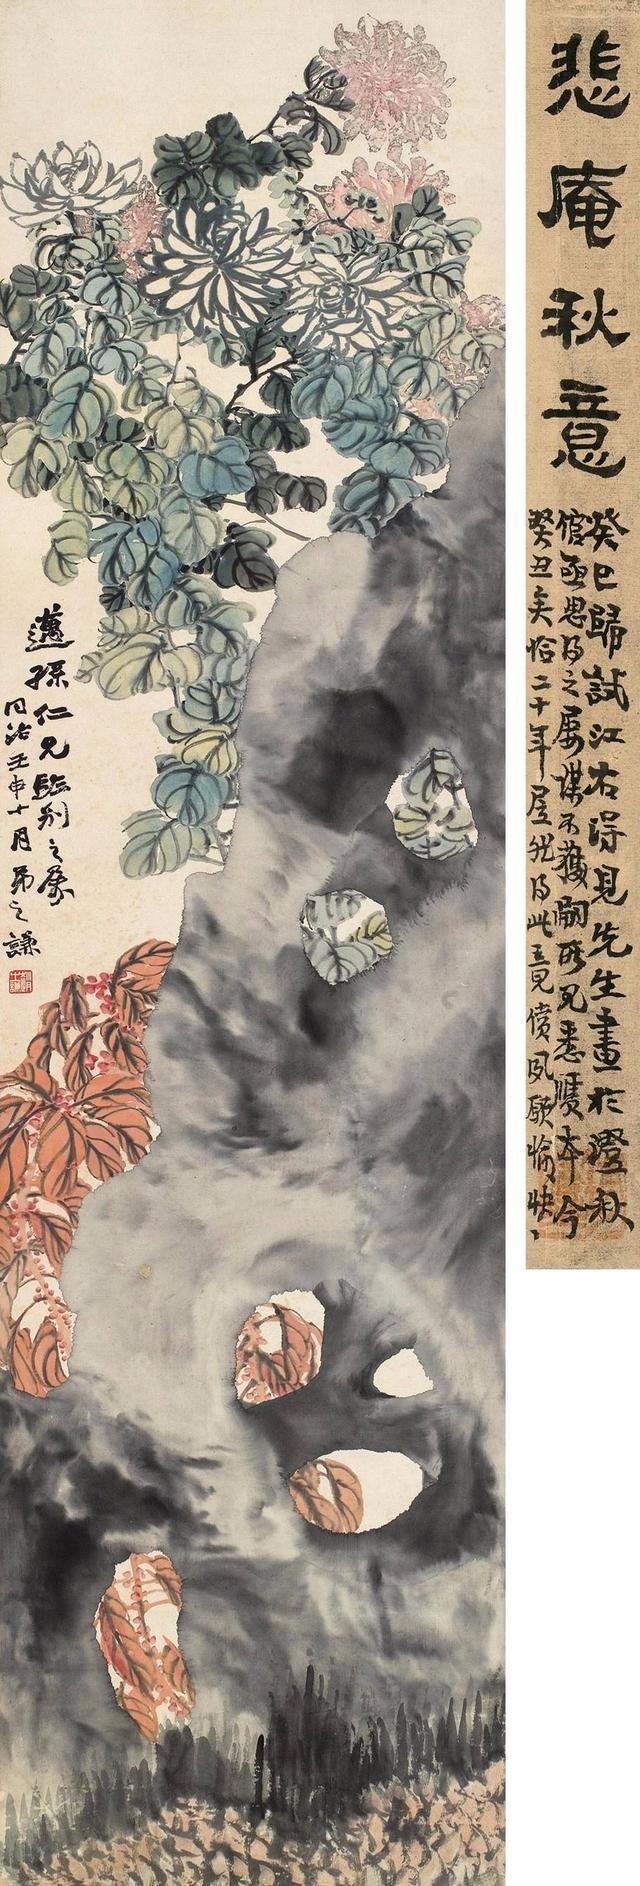 邁孫仁兄臨別之屬
同治壬申十月弟之謙
悲庵秋意
癸巳歸試江右得見先生畫於澄秋
倌亟思得之屡謀不獲嗣所見悉贋本今
癸丑矣恰二十年屋然得此意見償夙願愉快